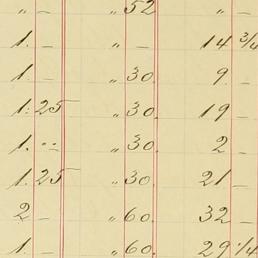 „ – „ 52 „ –
1. – „ – 14 3/4
1. – „ 30. 9 –
1. 25 „ 30. 19 –
1. -- „ 30. 2 –
1. 25 „ 30. 21 –
2 – „ 60. 32 –
1. – „ 60. 29 1/4